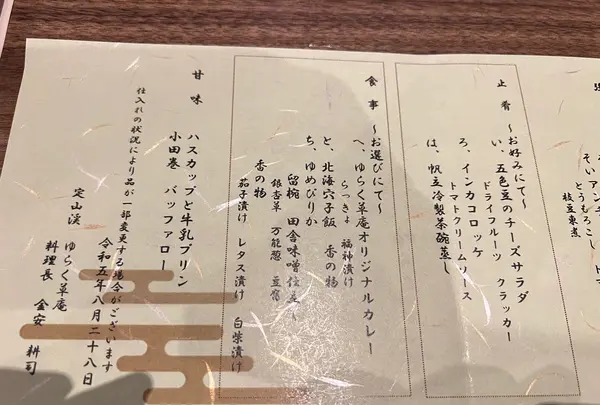 そいアン
とうもろこし
枝豆東煮
止肴 〜お好みにて〜
い、五色豆のチーズサラダ
ドライフルーツ クラッカー
ろ、インカコロッケ
トマトクリームソース
は、帆立冷製茶碗蒸し
食事 〜お選びにて〜
へ、ゆらく草庵オリジナルカレー
らっきょ 福神漬け
と、北海穴子飯 香の物
ち、ゆめぴりか
留椀 田舎味噌仕立
銀杏草 万能葱 豆腐
香の物
茄子漬け レタス漬け 白菜漬け
甘味 ハスカップと牛乳プリン
小田巻 バッファロー
仕入れの状況により品が一部変更する場合がございます
令和五年八月二十八日
定山渓 ゆらく草庵
料理長 金安 耕司